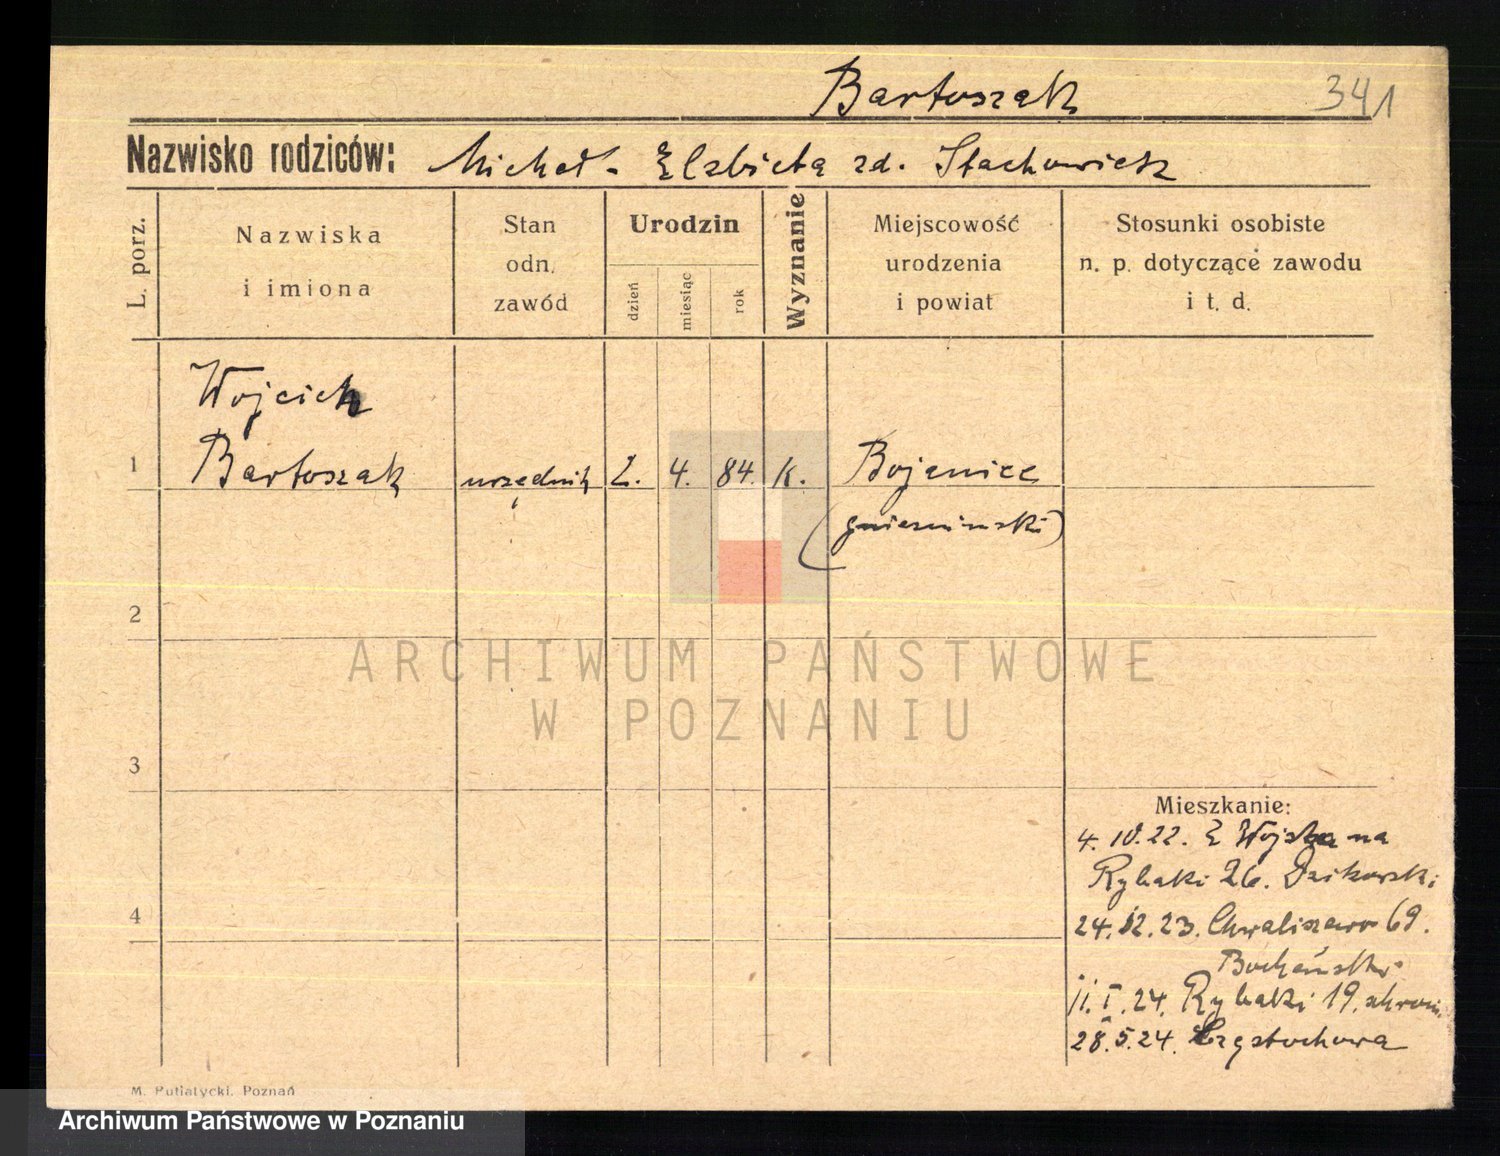 Bartoszak 341
Nazwisko rodziców: Michał - Elżbieta zd. Stachowiak
L. porz.
Nazwiska
i imiona
Stan
odn.
zawód
Urodzin
dzień
miesiąc
rok
Wyznanie
Miejscowość
urodzenia
i powiat
Stosunki osobiste
n. p. dotyczące zawodu
i t. d.
Wojciech
1 Bartoszak urzędnik 2. 4. 84. k. Bojanice
(gnieźnieński)
2
ARCHIWUM PAŃSTWOWE
W POZNANIU
3
Mieszkanie:
4. 10. 22. Z Wojska na
Rybaki 26. Dzikowski
4
24. 12. 23. Chwaliszewo 69.
11. I. 24. Rybaki 19.
28. 5. 24. Częstochowa
M. Putiatycki, Poznań
Archiwum Państwowe w Poznaniu